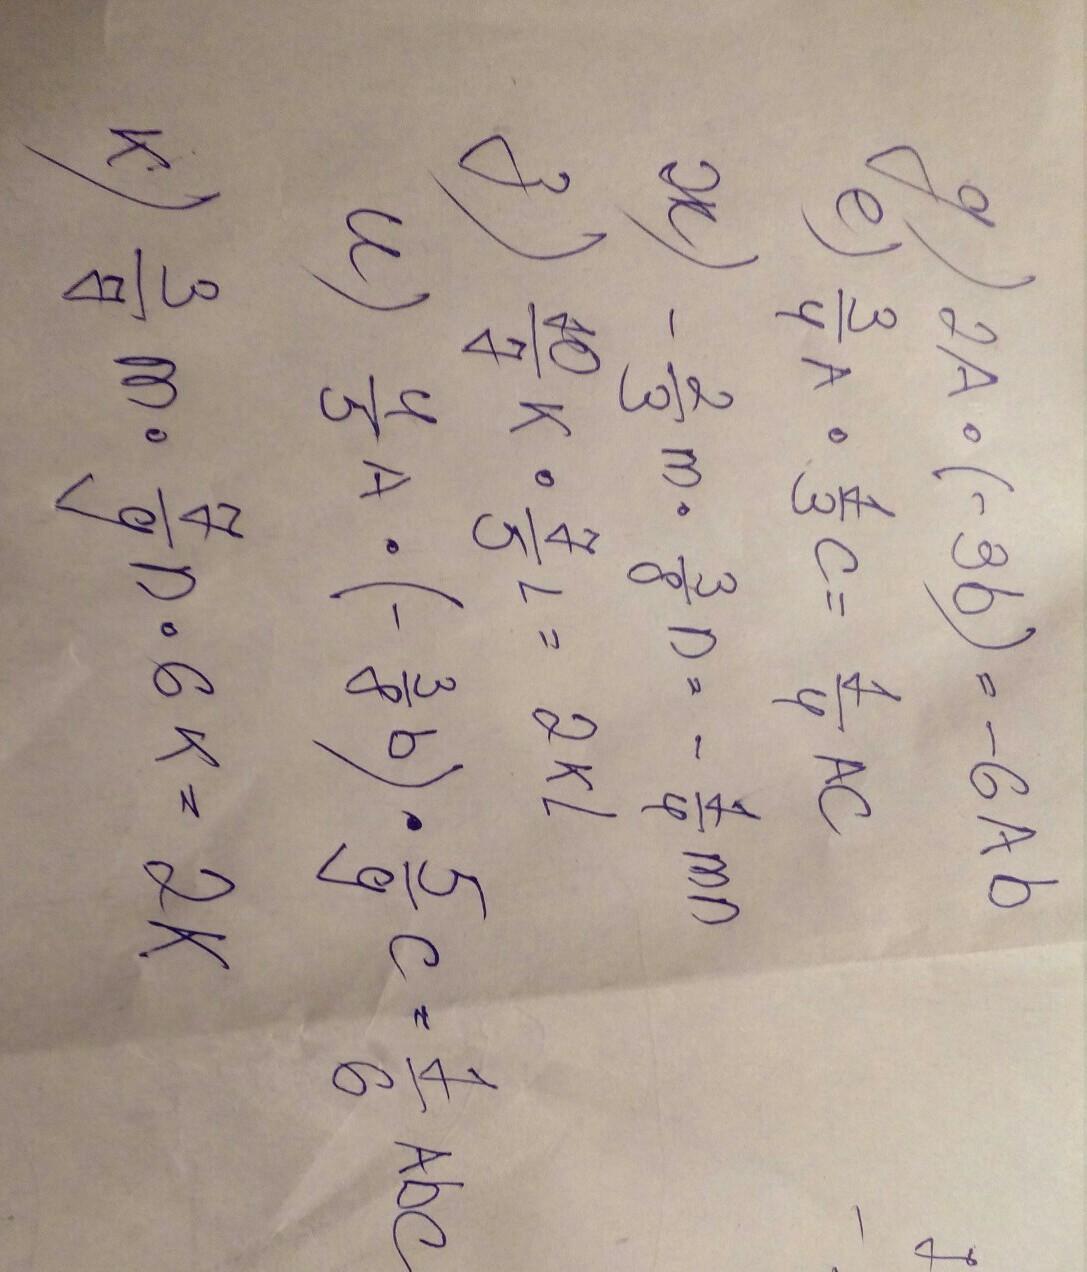 д) 2A · (-3b) = -6Ab
е) 3/4 A · 1/3 C = 1/4 AC
ж) - 2/3 m · 3/8 n = - 1/4 mn
з) 10/7 K · 7/5 L = 2KL
и) 4/5 A · (- 3/8 b) · 5/9 C = 1/6 AbC
к) 3/7 m · 7/9 n · 6K = 2K